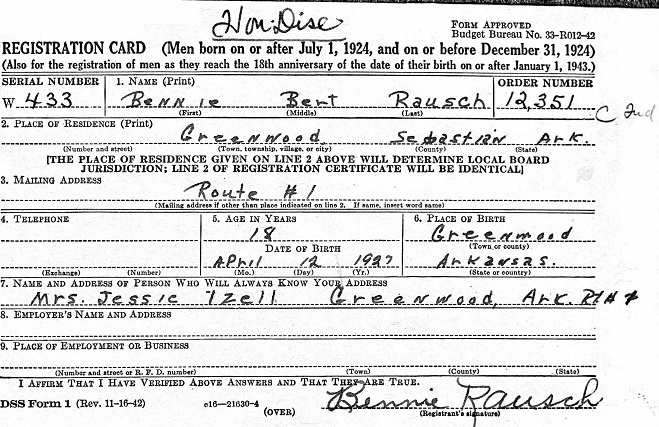 Hon. Disc
FORM APPROVED
Budget Bureau No. 33-R012-42
REGISTRATION CARD (Men born on or after July 1, 1924, and on or before December 31, 1924)
(Also for the registration of men as they reach the 18th anniversary of the date of their birth on or after January 1, 1943.)
SERIAL NUMBER 1. NAME (Print) ORDER NUMBER
W 433 Bennie Bert Rausch 12,351
(First) (Middle) (Last)
C 2nd
2. PLACE OF RESIDENCE (Print)
Greenwood Sebastian Ark.
(Number and street) (Town, township, village, or city) (County) (State)
[THE PLACE OF RESIDENCE GIVEN ON LINE 2 ABOVE WILL DETERMINE LOCAL BOARD
JURISDICTION; LINE 2 OF REGISTRATION CERTIFICATE WILL BE IDENTICAL]
3. MAILING ADDRESS
Route #1
(Mailing address if other than place indicated on line 2. If same, insert word same)
4. TELEPHONE 5. AGE IN YEARS 6. PLACE OF BIRTH
18 Greenwood
DATE OF BIRTH (Town or county)
April 12 1927 Arkansas.
(Exchange) (Number) (Mo.) (Day) (Yr.) (State or country)
7. NAME AND ADDRESS OF PERSON WHO WILL ALWAYS KNOW YOUR ADDRESS
Mrs. Jessie Izell Greenwood, Ark. Rt #1
8. EMPLOYER'S NAME AND ADDRESS
9. PLACE OF EMPLOYMENT OR BUSINESS
(Number and street or R. F. D. number) (Town) (County) (State)
I AFFIRM THAT I HAVE VERIFIED ABOVE ANSWERS AND THAT THEY ARE TRUE.
DSS Form 1 (Rev. 11-16-42) c16—21630-4 (OVER) Bennie Rausch
(Registrant's signature)